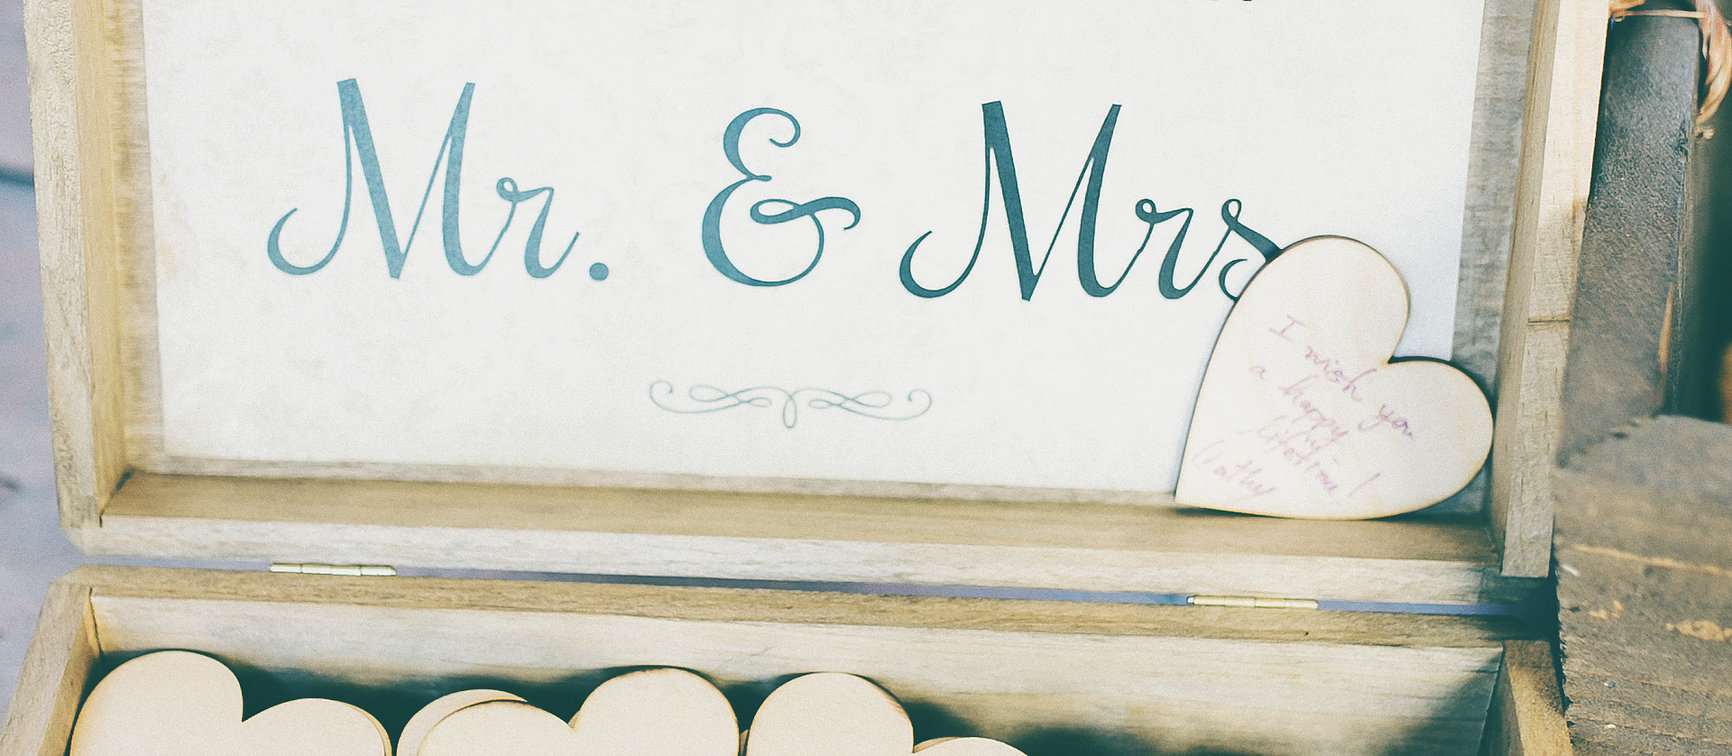 Mr. & Mrs
I wish you
a happy
lifetime!
Cathy